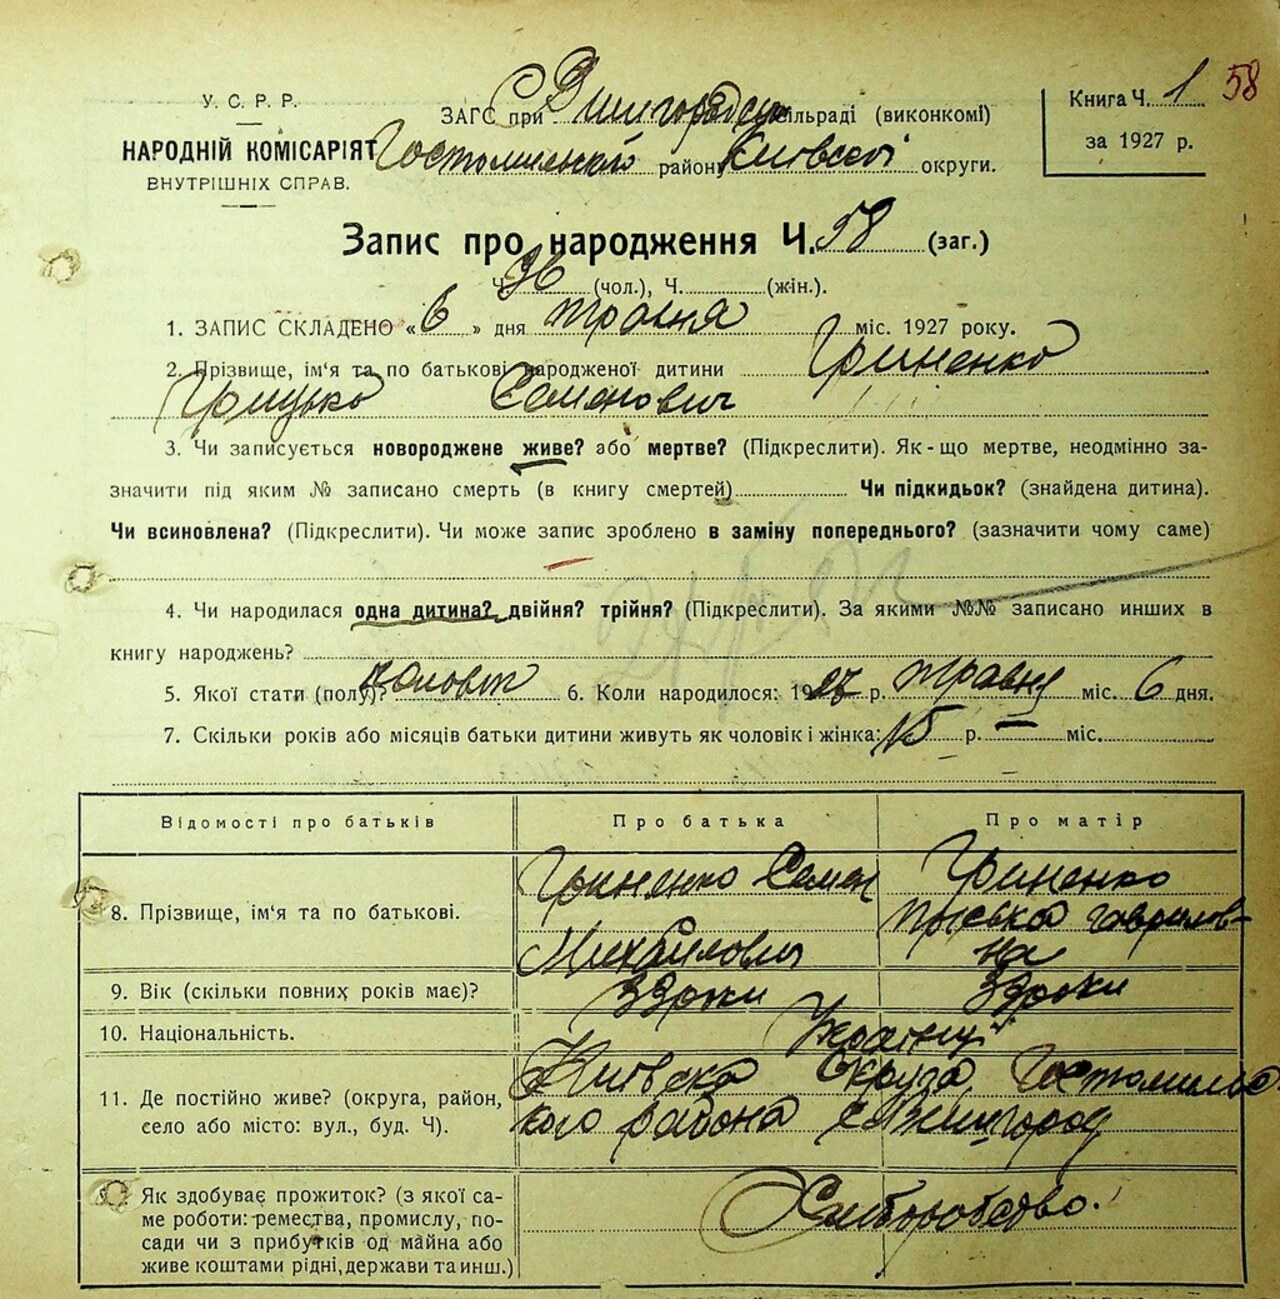 58
У. С. Р. Р.
НАРОДНІЙ КОМІСАРІЯТ
ВНУТРІШНІХ СПРАВ.
ЗАГС при с Вишгородськ сільраді (виконкомі)
Гостомиського району Київської округи.
Книга Ч. 1
за 1927 р.
Запис про народження Ч. 58 (заг.)
Ч. 36 (чол.), Ч. (жін.).
1. ЗАПИС СКЛАДЕНО « 6 » дня травня міс. 1927 року.
2. Прізвище, ім'я та по батькові народженої дитини Гриненко
Грицько Семенович
3. Чи записується новороджене живе? або мертве? (Підкреслити). Як-що мертве, неодмінно за-
значити під яким № записано смерть (в книгу смертей) Чи підкидьок? (знайдена дитина).
Чи всиновлена? (Підкреслити). Чи може запис зроблено в заміну попереднього? (зазначити чому саме)
4. Чи народилася одна дитина? двійня? трійня? (Підкреслити). За якими №№ записано инших в
книгу народжень?
5. Якої стати (полу)? чоловіч 6. Коли народилося: 1927 р. травня міс. 6 дня.
7. Скільки років або місяців батьки дитини живуть як чоловік і жінка: 15 р. — міс.
Відомості про батьків Про батька Про матір
8. Прізвище, ім'я та по батькові. Гриненко Семен Михайлович Гриненко Пріська Гаврилов-
на
9. Вік (скільки повних років має)? 33 роки 33 роки
10. Національність. Українці
11. Де постійно живе? (округа, район, село або місто: вул., буд. Ч). Київска Округа, Гостомилс
кого района с Вишгород
12. Як здобуває прожиток? (з якої са-
ме роботи: ремества, промислу, по-
сади чи з прибутків од майна або
живе коштами рідні, держави та инш.) Хліборобство.